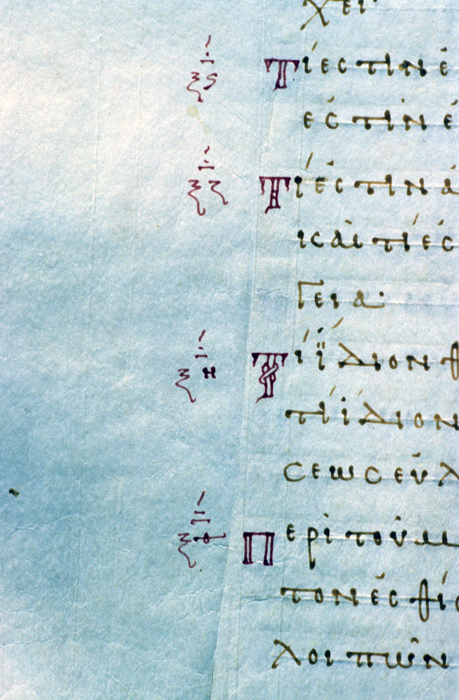 χει·
ξϛ Τί ἐστιν ἐ
ἐστιν ἐ
ξζ Τί ἐστιν ἀ
καὶ τί ἐσ
γεια·
ξη Τί ἴδιον
τί ἴδιον
σεως εὐλ
ξθ Περὶ τοῦ μ
τον
λοιπῶν